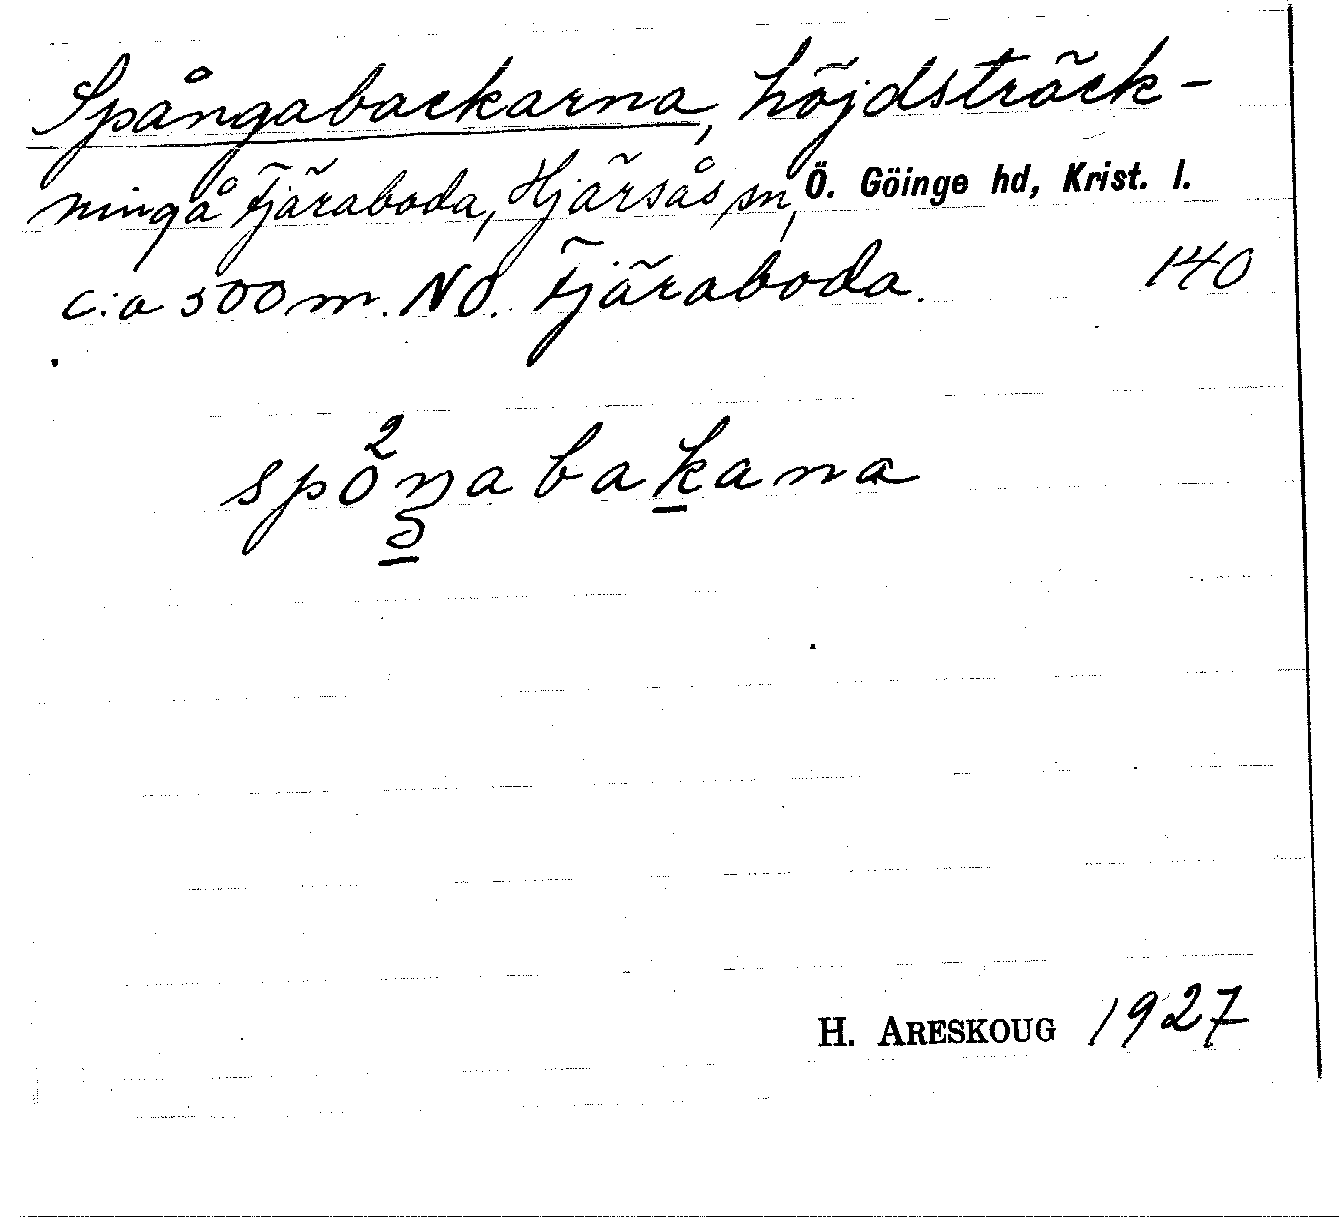 Spångabackarna, höjdsträck-
ning å Tjäraboda, Hjärsås sn, Ö. Göinge hd, Krist. l.
c:a 500 m. NO. Tjäraboda. 140
2
spoŋabakana
H. ARESKOUG 1927